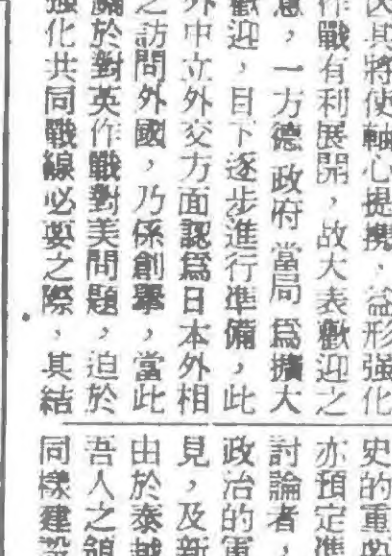 因其將使軸心提携，益形強化
作戰有利展開，故大表歡迎之
意，一方德政府當局爲擴大
歡迎，目下逐步進行準備，此
外中立外交方面認爲日本外相
之訪問外國，乃係創擧，當此
關於對英作戰對美問題，迫於
強化共同戰線必要之際，其結
史的重
亦預定準
討論者，
政治的軍
見，及新
由於泰越
吾人之
同樣建設